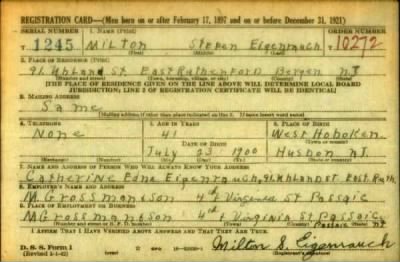 REGISTRATION CARD—(Men born on or after February 17, 1897 and on or before December 31, 1921)
SERIAL NUMBER 1. NAME (Print) ORDER NUMBER
T 1245 Milton Steven Eigenrauch 10272
(First) (Middle) (Last)
2. PLACE OF RESIDENCE (Print)
91 Uhland St. East Rutherford Bergen NJ
(Number and street) (Town, township, village, or city) (County) (State)
[THE PLACE OF RESIDENCE GIVEN ON THE LINE ABOVE WILL DETERMINE LOCAL BOARD
JURISDICTION; LINE 2 OF REGISTRATION CERTIFICATE WILL BE IDENTICAL]
3. MAILING ADDRESS
Same
[Mailing address if other than place indicated on line 2. If same insert word same]
4. TELEPHONE 5. AGE IN YEARS 6. PLACE OF BIRTH
None 41 West Hoboken
DATE OF BIRTH (Town or county)
July 23 1900 Husdon NJ
(Mo.) (Day) (Yr.) (State or country)
7. NAME AND ADDRESS OF PERSON WHO WILL ALWAYS KNOW YOUR ADDRESS
Catherine Edna Eigenrauch, 91 Uhland St East Ruth
8. EMPLOYER'S NAME AND ADDRESS
M Grossman & Son 4th Virginia St Passaic
9. PLACE OF EMPLOYMENT OR BUSINESS
M Grossman & Son 4th Virginia St Passaic Passaic NJ
(Number and street or R. F. D. number) (Town) (County) (State)
I AFFIRM THAT I HAVE VERIFIED ABOVE ANSWERS AND THAT THEY ARE TRUE.
D. S. S. Form 1
(Revised 1-1-42)
Milton S. Eigenrauch